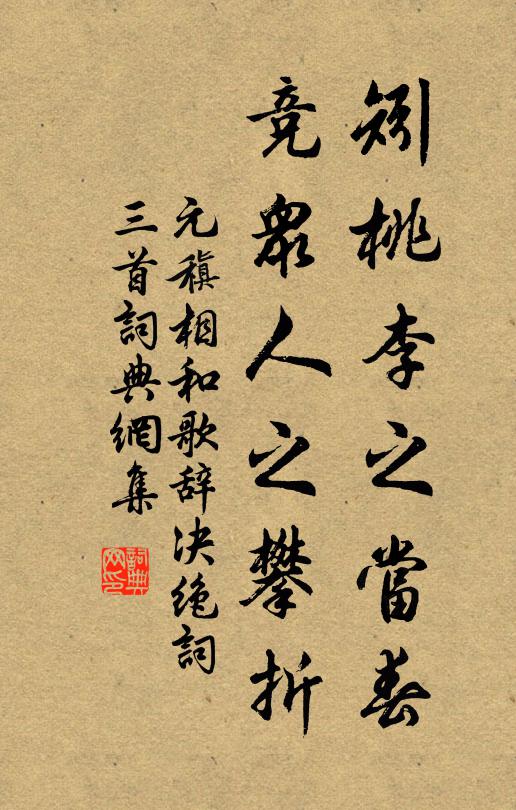 矧桃李之當春
競眾人之攀折
元稹相和歌辞决绝詞
三首詞典網集
詞典网印